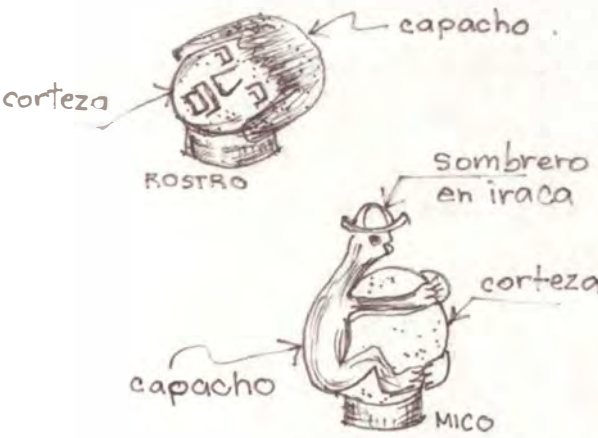 capacho.
corteza
ROSTRO
sombrero
en iraca
corteza
capacho
MICO